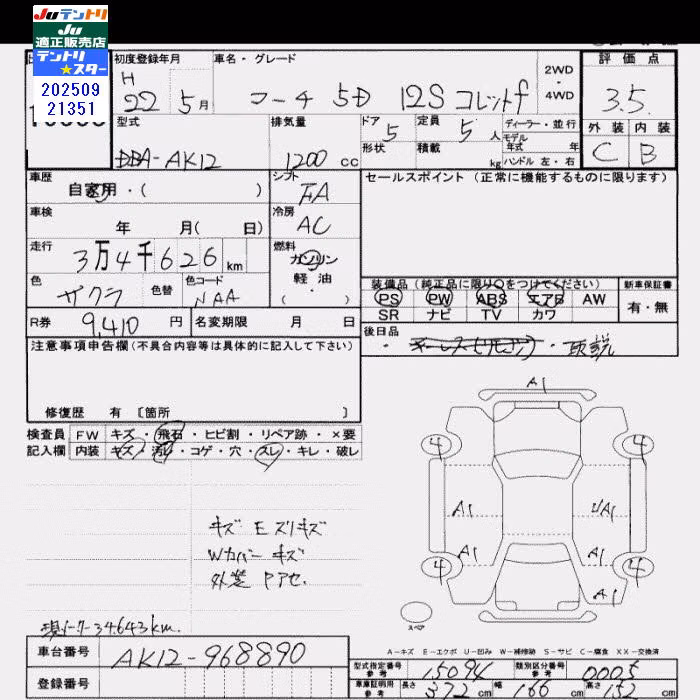 Juテントリ
Ju
適正販売店
テントリ
★スター
202509
21351
初度登録年月
H 22年 5月
車名・グレード
マーチ 5D 12S コレットf
2WD
・
4WD
評価点
3.5
型式
DBA-AK12
排気量
1200 cc
ドア
5
形状
定員
5 人
積載
kg
ディーラー・並行
モデル
年式 年
ハンドル 左・右
外装 内装
C B
車歴
自家用・( )
シフト
FA
セールスポイント(正常に機能するものに限ります)
車検
年 月( 日)
冷房
AC
走行
3万4千626km
燃料
ガソリン
軽油
・( )
色
サクラ
色替
色コード
NAA
装備品(純正品に限り○をつけてください)
PS PW ABS エアB AW
SR ナビ TV カワ
新車保証書
有・無
R券
9,410 円
名変期限 月 日
後日品
キーレス(リモコン)・取説
注意事項申告欄(不具合内容等は具体的に記入して下さい)
修復歴 有 [箇所 ]
検査員 FW キズ・飛石・ヒビ割・リペア跡・×要
記入欄 内装 キズ・汚れ・コゲ・穴・スレ・キレ・破レ
A1
4 4
A1 U/A1
A1 A1
4 4
A1
スペア
キズ E ズリキズ
Wカバー キズ
外装 Pアセ.
現メーター34,643km.
A-キズ E-エクボ U-凹み W-補修跡 S-サビ C-腐食 XX-交換済
車台番号 AK12-968890
登録番号
型式指定番号
参考
15094
類別区分番号
参考
0005
車庫証明用
参考
長さ 372 cm 幅 166 cm 高さ 152 cm